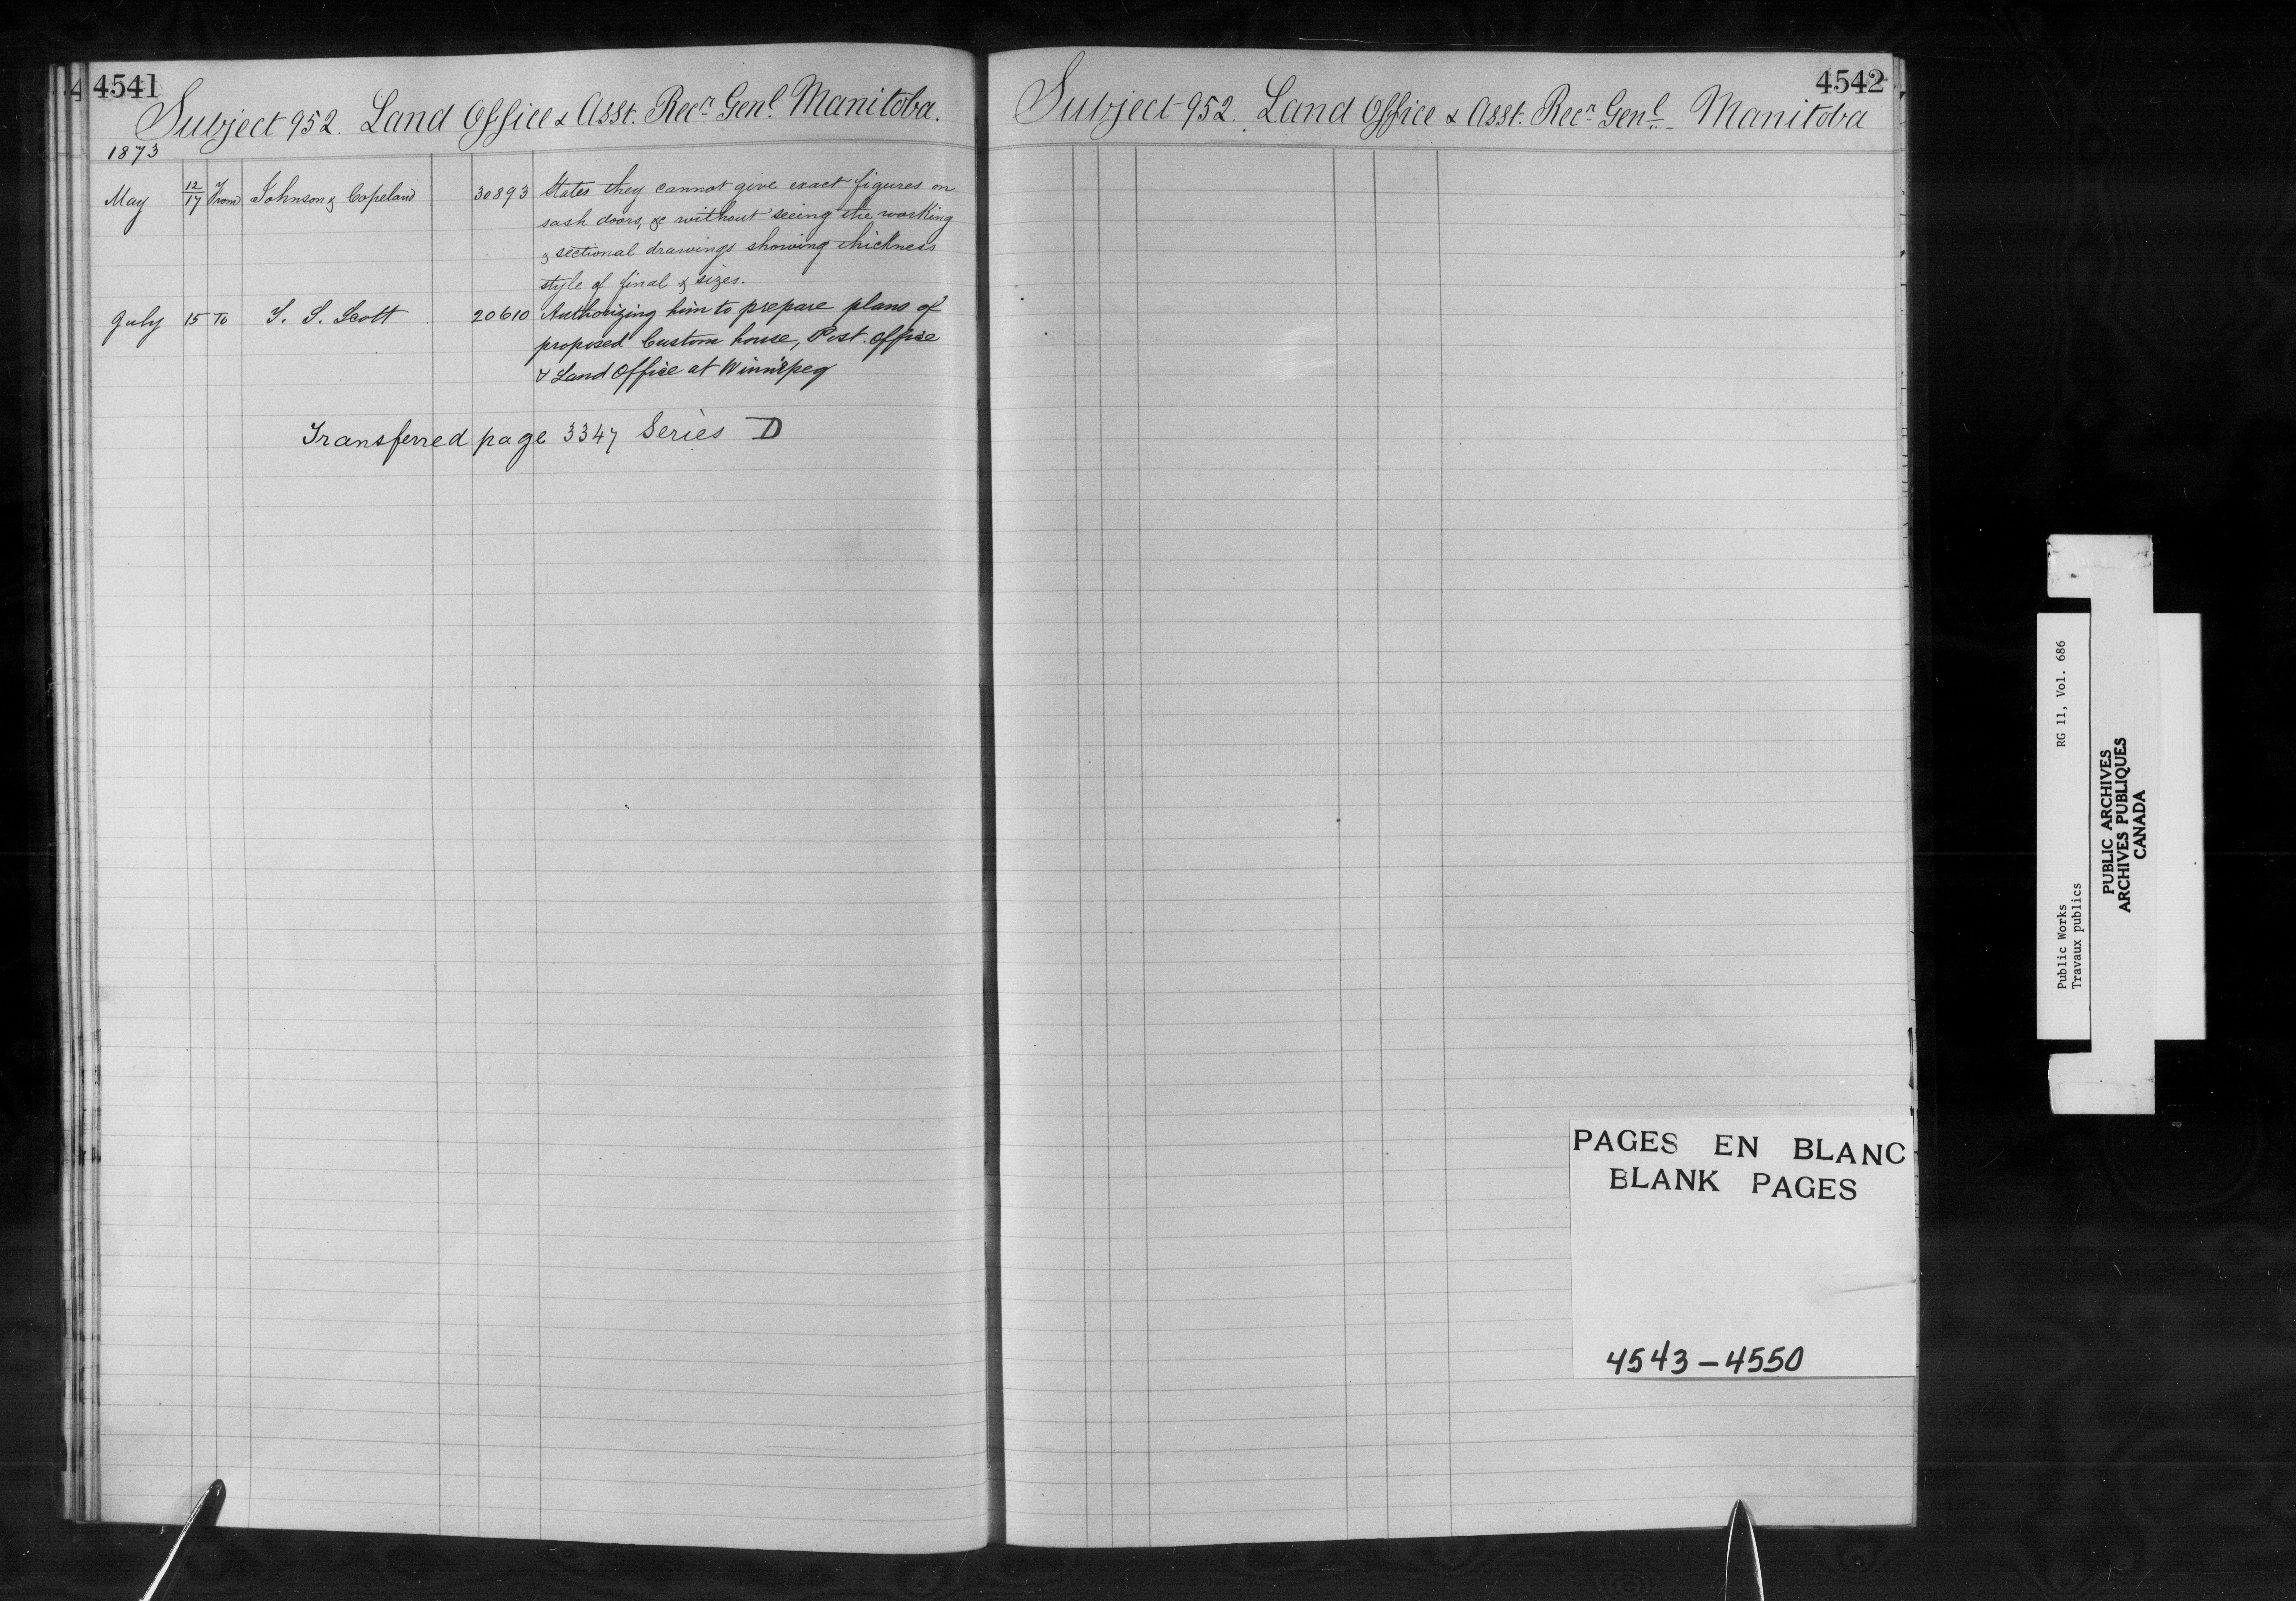 4541
Subject 952. Land Office & Asst. Recr Genl. Manitoba.
1873
May 12/17 From Johnson & Copeland 30893 States they cannot give exact figures on
sash doors, &c without seeing the working
& sectional drawings showing thickness
style of final & sizes.
July 15 To T. S. Scott 20610 Authorizing him to prepare plans of
proposed Custom house, Post. Office
& Land Office at Winnipeg
Transferred page 3347 Series D
4542
Subject 952. Land Office & Asst. Recr Genl Manitoba
PAGES EN BLANC
BLANK PAGES
4543-4550
Public Works RG 11, Vol. 686
Travaux publics
PUBLIC ARCHIVES
ARCHIVES PUBLIQUES
CANADA